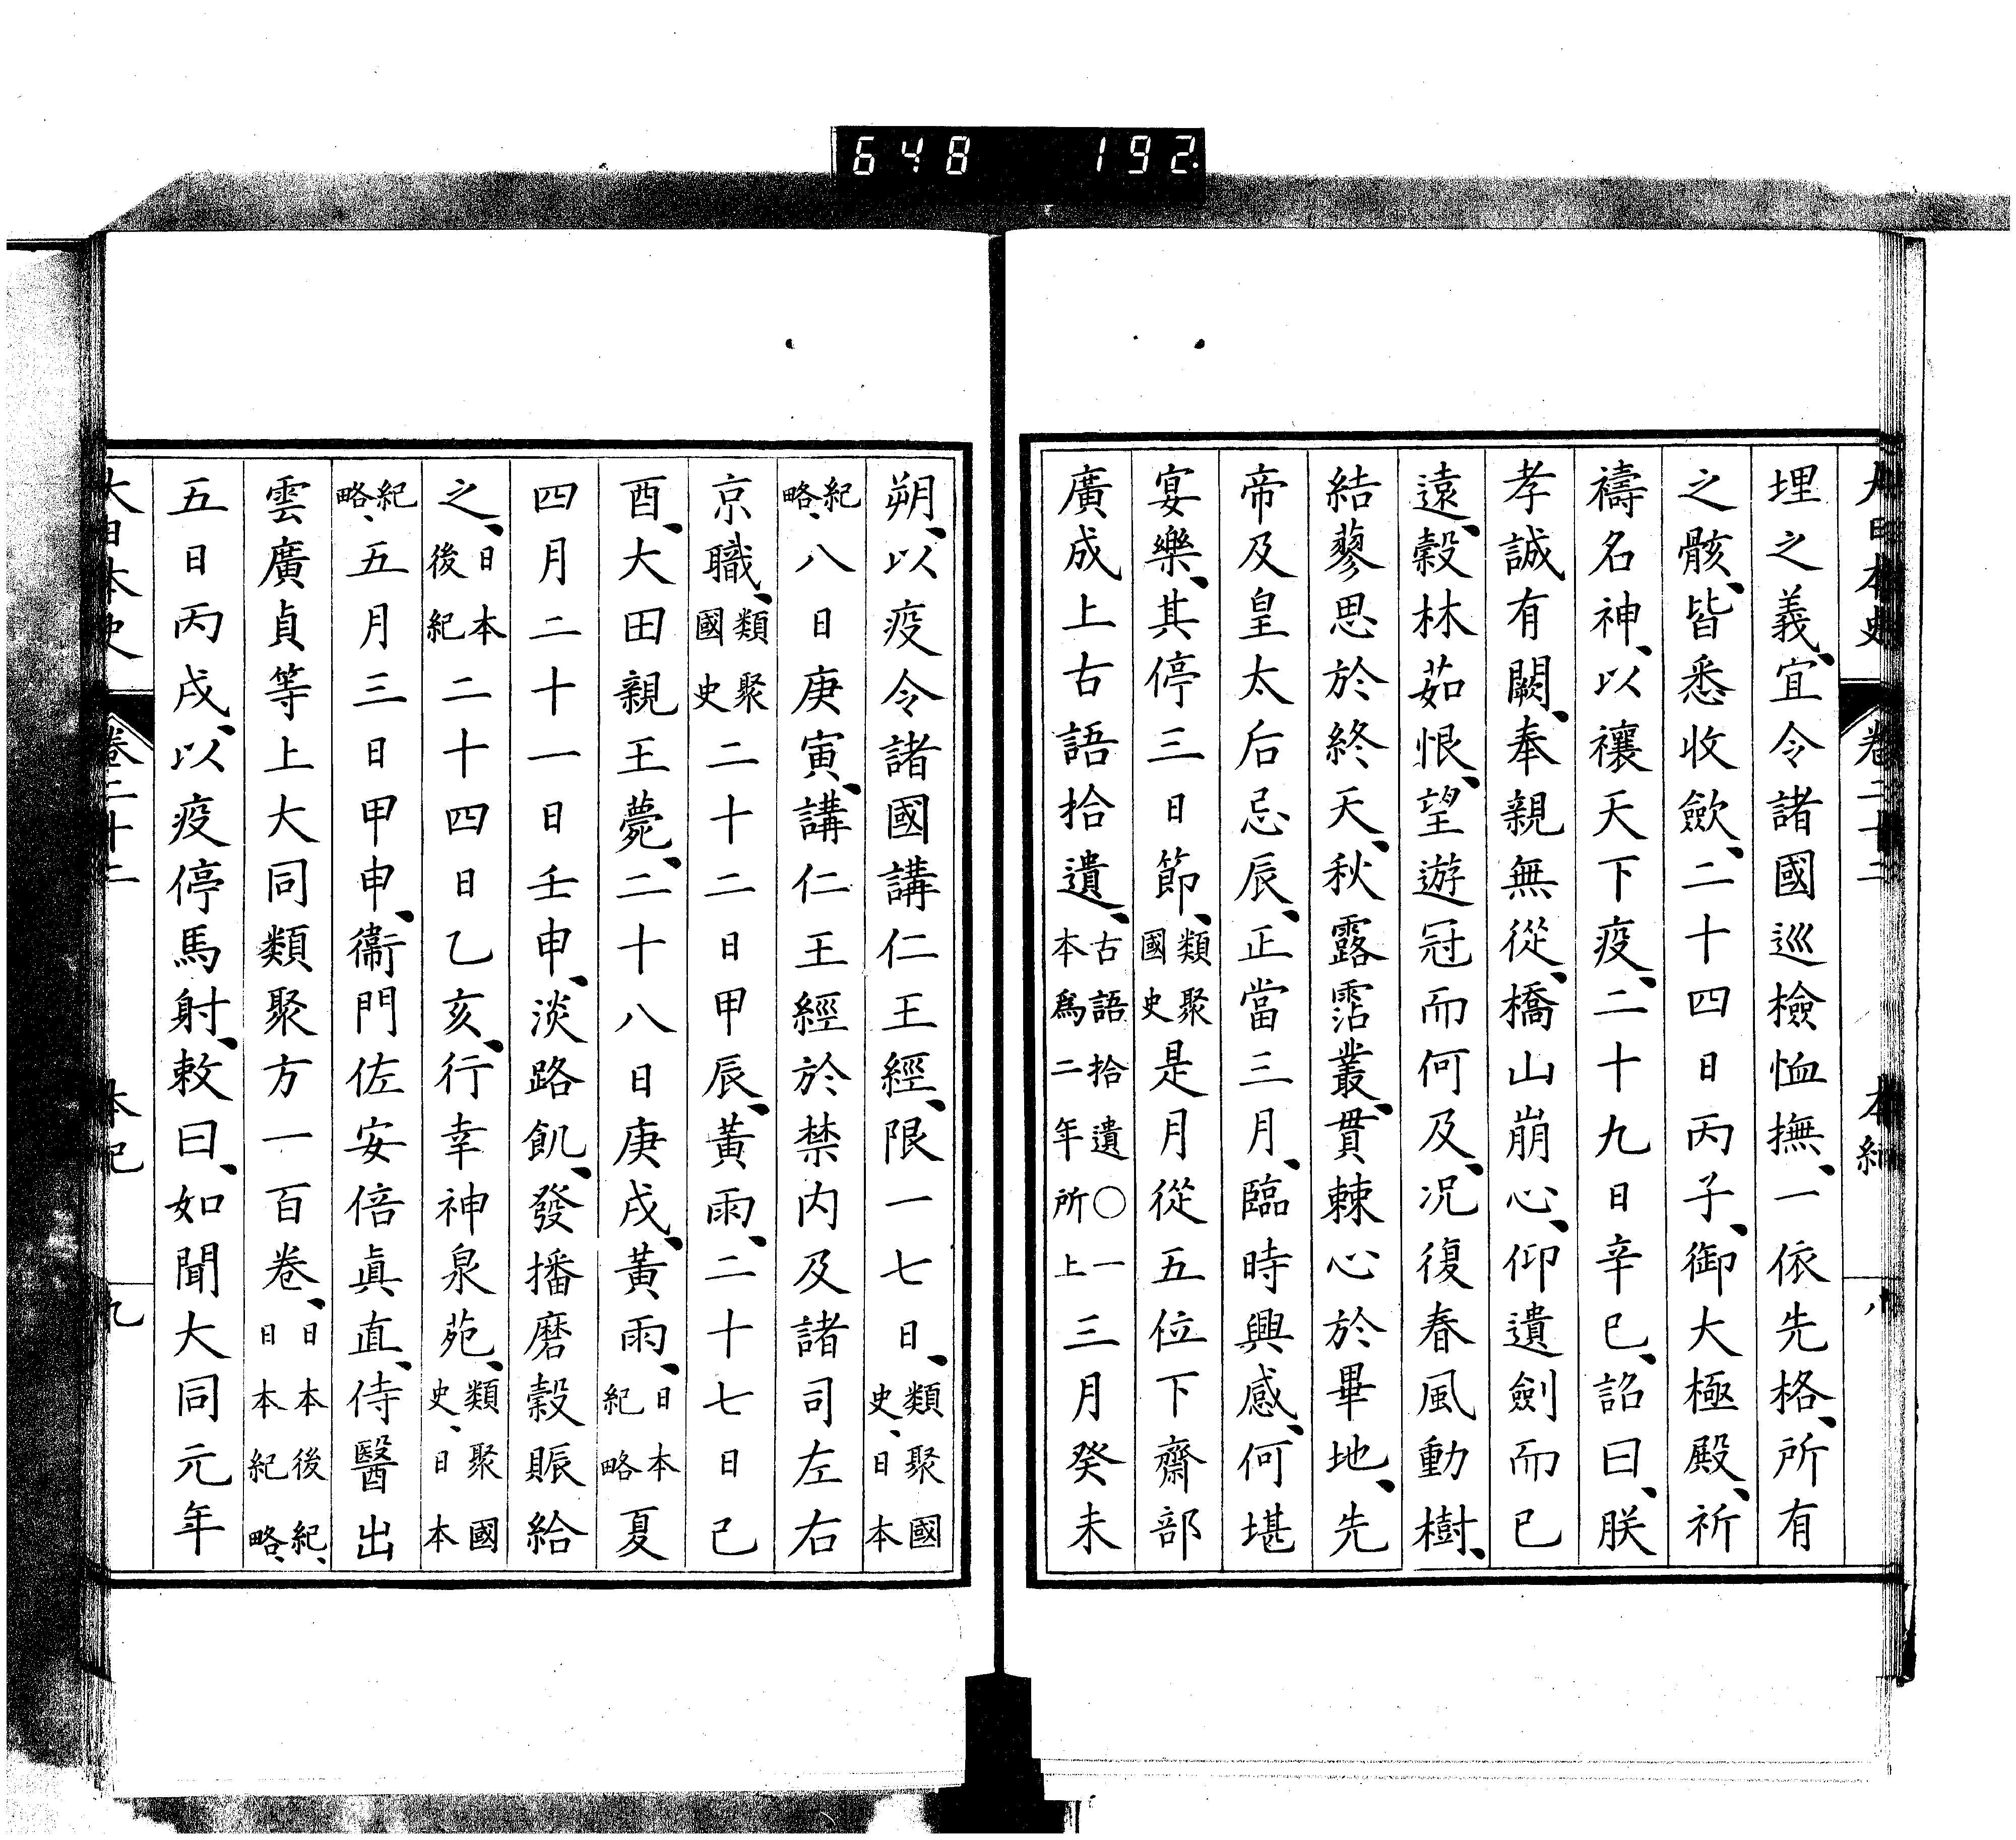 648 192
大日本史 卷二十二 本紀 八
埋之義、宜令諸國巡檢恤撫、一依先格、所有
之骸、皆悉收歛、二十四日丙子、御大極殿、祈
禱名神、以禳天下疫、二十九日辛巳、詔曰、朕
孝誠有闕、奉親無從、橋山崩心、仰遺劍而已
遠、穀林茹恨、望遊冠而何及、况復春風動樹、
結蓼思於終天、秋露霑叢、貫棘心於畢地、先
帝及皇太后忌辰、正當三月、臨時興感、何堪
宴樂、其停三日節、類聚國史是月從五位下齋部
廣成上古語拾遺、古語拾遺〇一本爲二年所上三月癸未
朔、以疫令諸國講仁王經、限一七日、類聚國史、日本
紀略、八日庚寅、講仁王經於禁内及諸司左右
京職、類聚國史二十二日甲辰、黃雨、二十七日己
酉、大田親王薨、二十八日庚戌、黃雨、日本紀略夏
四月二十一日壬申、淡路飢、發播磨穀賑給
之、日本後紀二十四日乙亥、行幸神泉苑、類聚國史、日本
紀略、五月三日甲申、衞門佐安倍眞直、侍醫出
雲廣貞等上大同類聚方一百卷、日本後紀、日本紀略、
五日丙戌、以疫停馬射、敕曰、如聞大同元年
大日本史 卷二十二 本紀 九